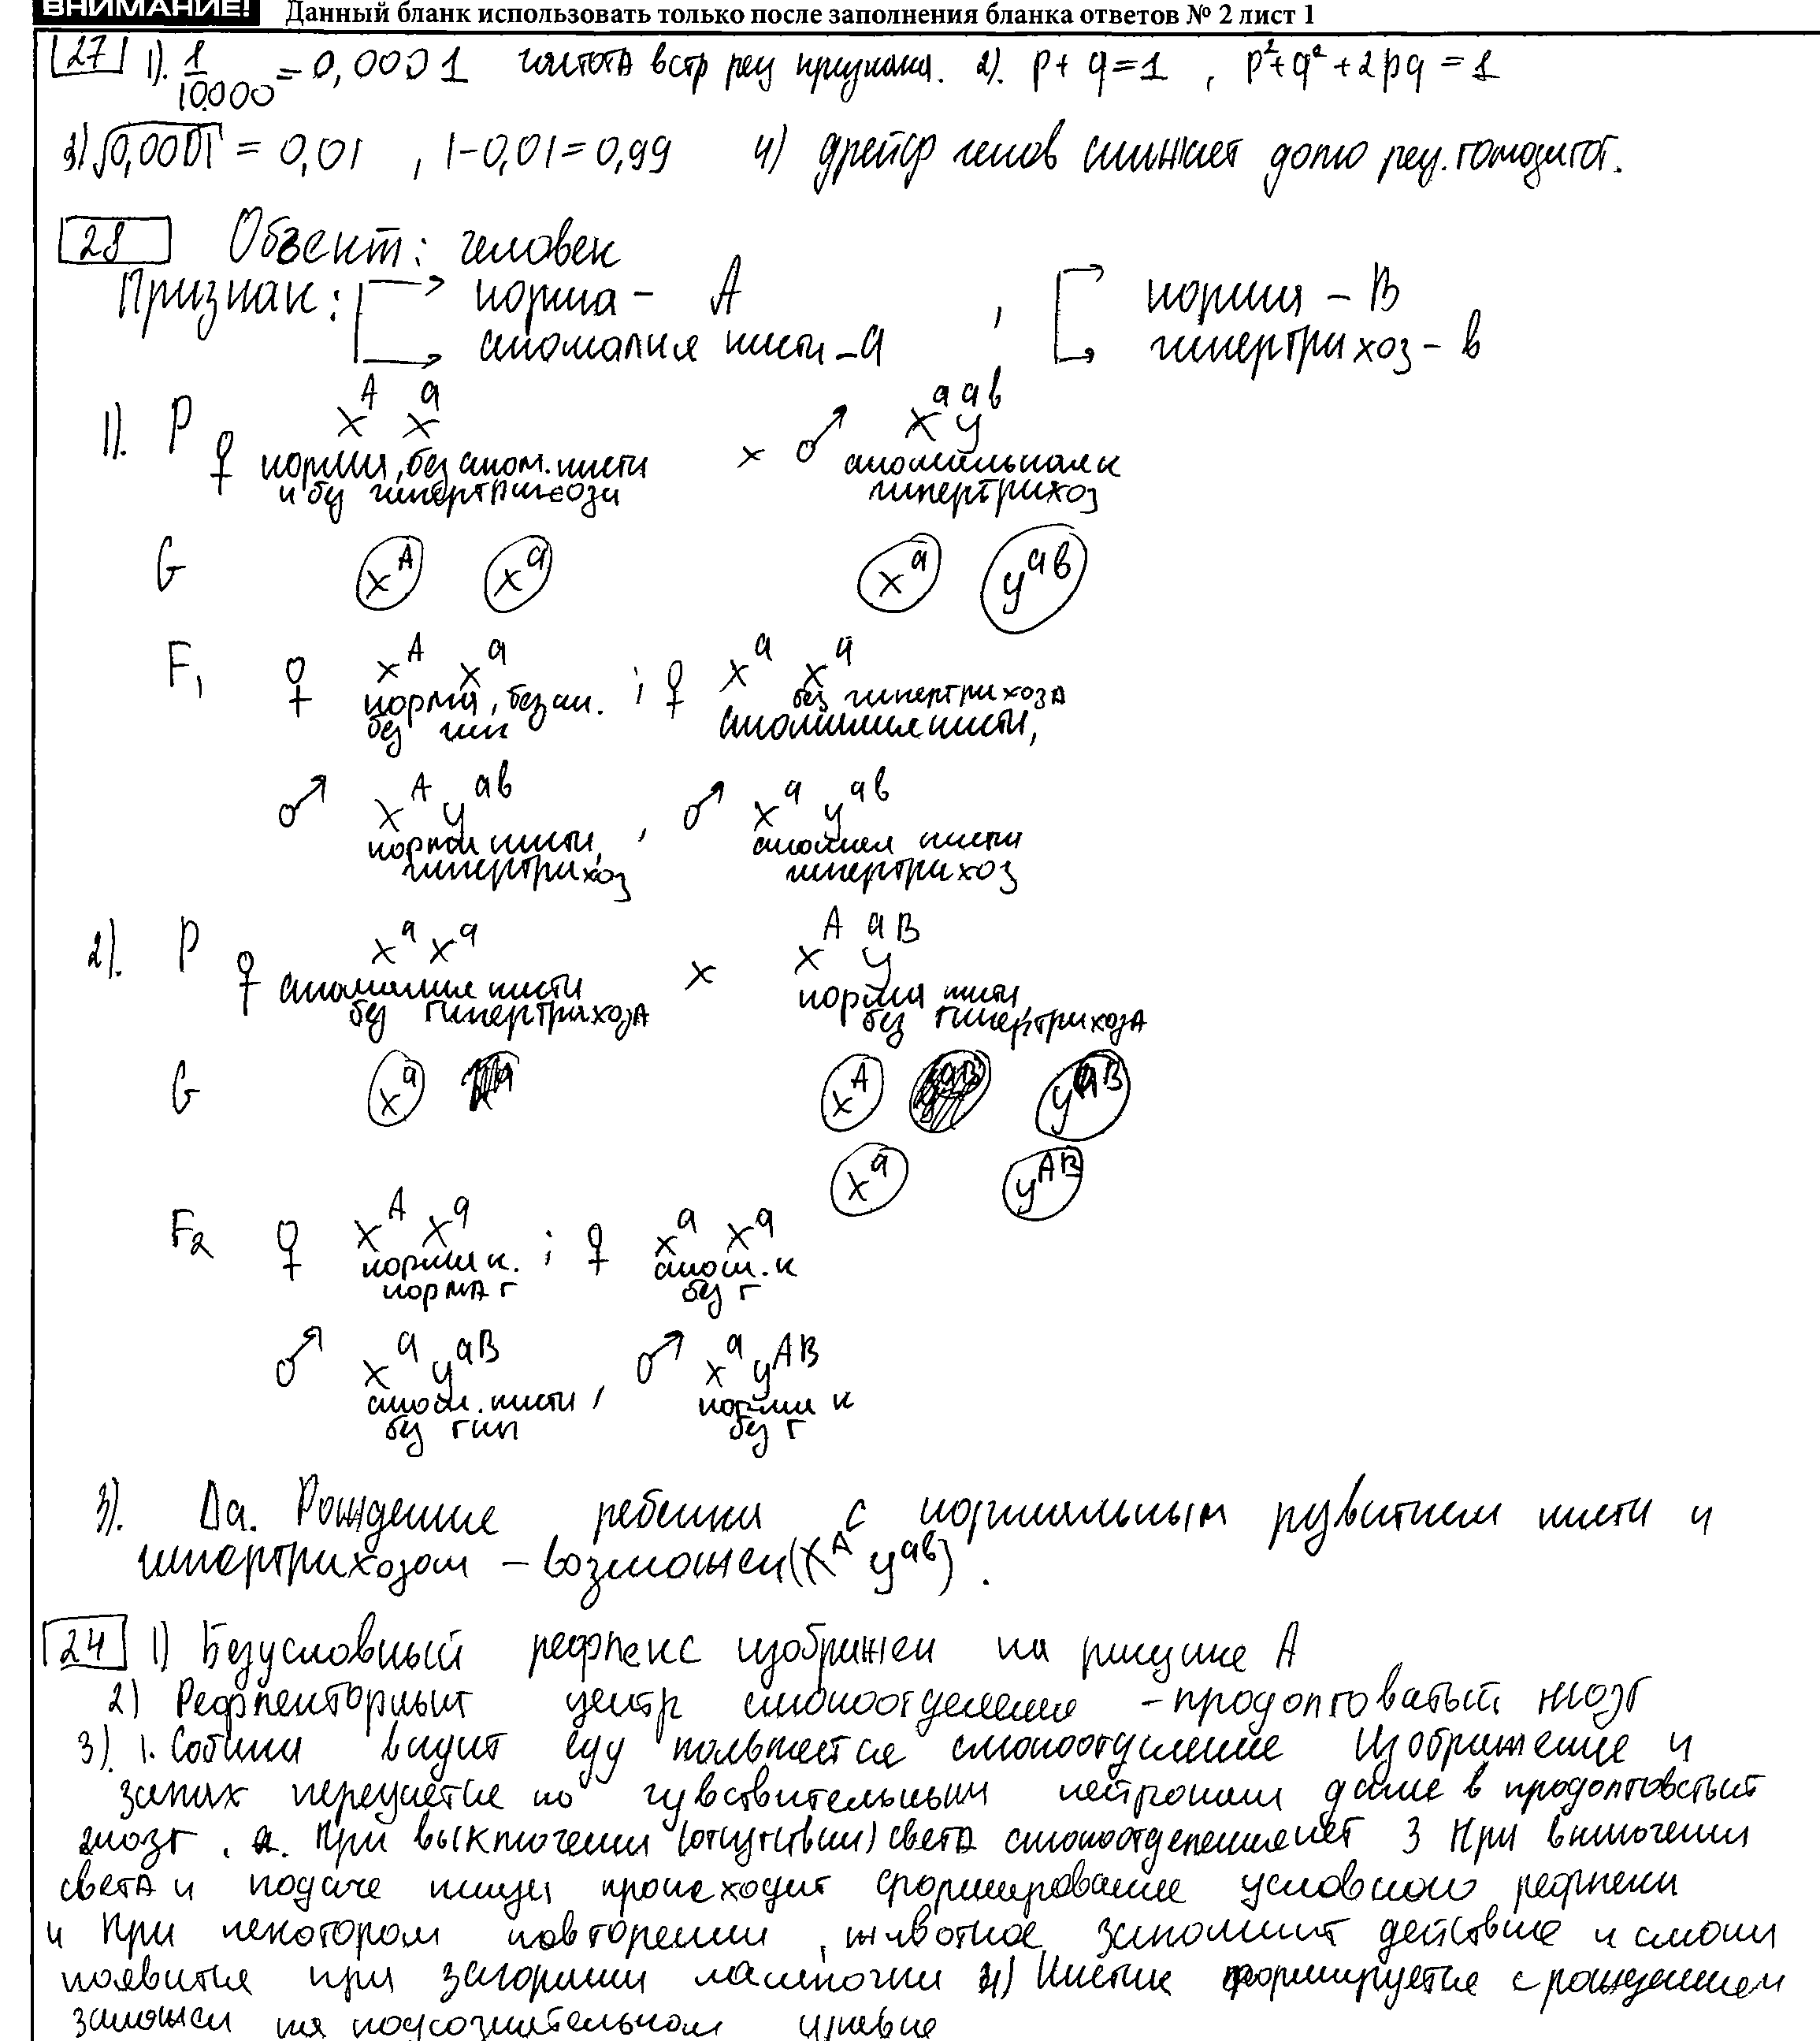 ВНИМАНИЕ! Данный бланк использовать только после заполнения бланка ответов № 2 лист 1
27 1). 1/10.000 = 0,0001 частота встр рец признака. 2). p + q = 1 , p²+q²+2pq = 1
3) √0,0001 = 0,01 , 1-0,01=0,99 4) дрейф генов снижает долю рец. гомозигот.
28 Объект: человек
Признак: норма - А , норма - В
аномалия кисти - а гипертрихоз - в
1). P ♀ X^A X^a × ♂ X^a У^ав
норма, без аном. кисти аномальная к
и без гипертрихоза гипертрихоз
G X^A X^a X^a У^ав
F₁ ♀ X^A X^a ; ♀ X^a X^a
норма, без ан. без гипертрихоза
без гип аномалия кисти,
♂ X^A У^ав , ♂ X^a У^ав
норма кисти, аномал кисти
гипертрихоз гипертрихоз
2). P ♀ X^a X^a × X^A У^аВ
аномалия кисти норма кисти
без гипертрихоза без гипертрихоза
G X^a X^A У^аВ
X^a У^АВ
F₂ ♀ X^A X^a ; ♀ X^a X^a
норма к. аном. к
норма г без г
♂ X^a У^аВ , ♂ X^a У^АВ
аном. кисти норма к
без гип без г
3). Да. Рождение ребенка с нормальным развитием кисти и
гипертрихозом - возможен (X^A У^ав).
24 1) Безусловный рефлекс изображен на рисунке А
2) Рефлекторный центр слюноотделения - продолговатый мозг
3) 1. Собака видит еду появляется слюноотделение Изображение и
запах передаётся по чувствительным нейронам далее в продолговатый
мозг. 2. При выключении (отсутствии) света слюноотделения нет 3 При включении
света и подаче пищи происходит формирование условного рефлекса
4 При некотором повторении, животное запомнит действие и слюна
появится при загорании лампочки 4) Инстинк формируется с рождением
заложен на подсознательном уровне